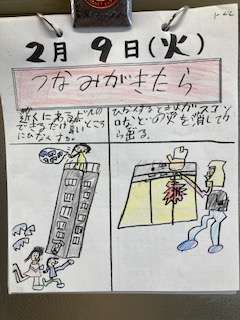 2月9日(火)
つなみがきたら
近くにあるビルの
できるだけ高いところ
にひなんする。
ひなんするときはガスコン
ロなどの火を消してか
ら出る。